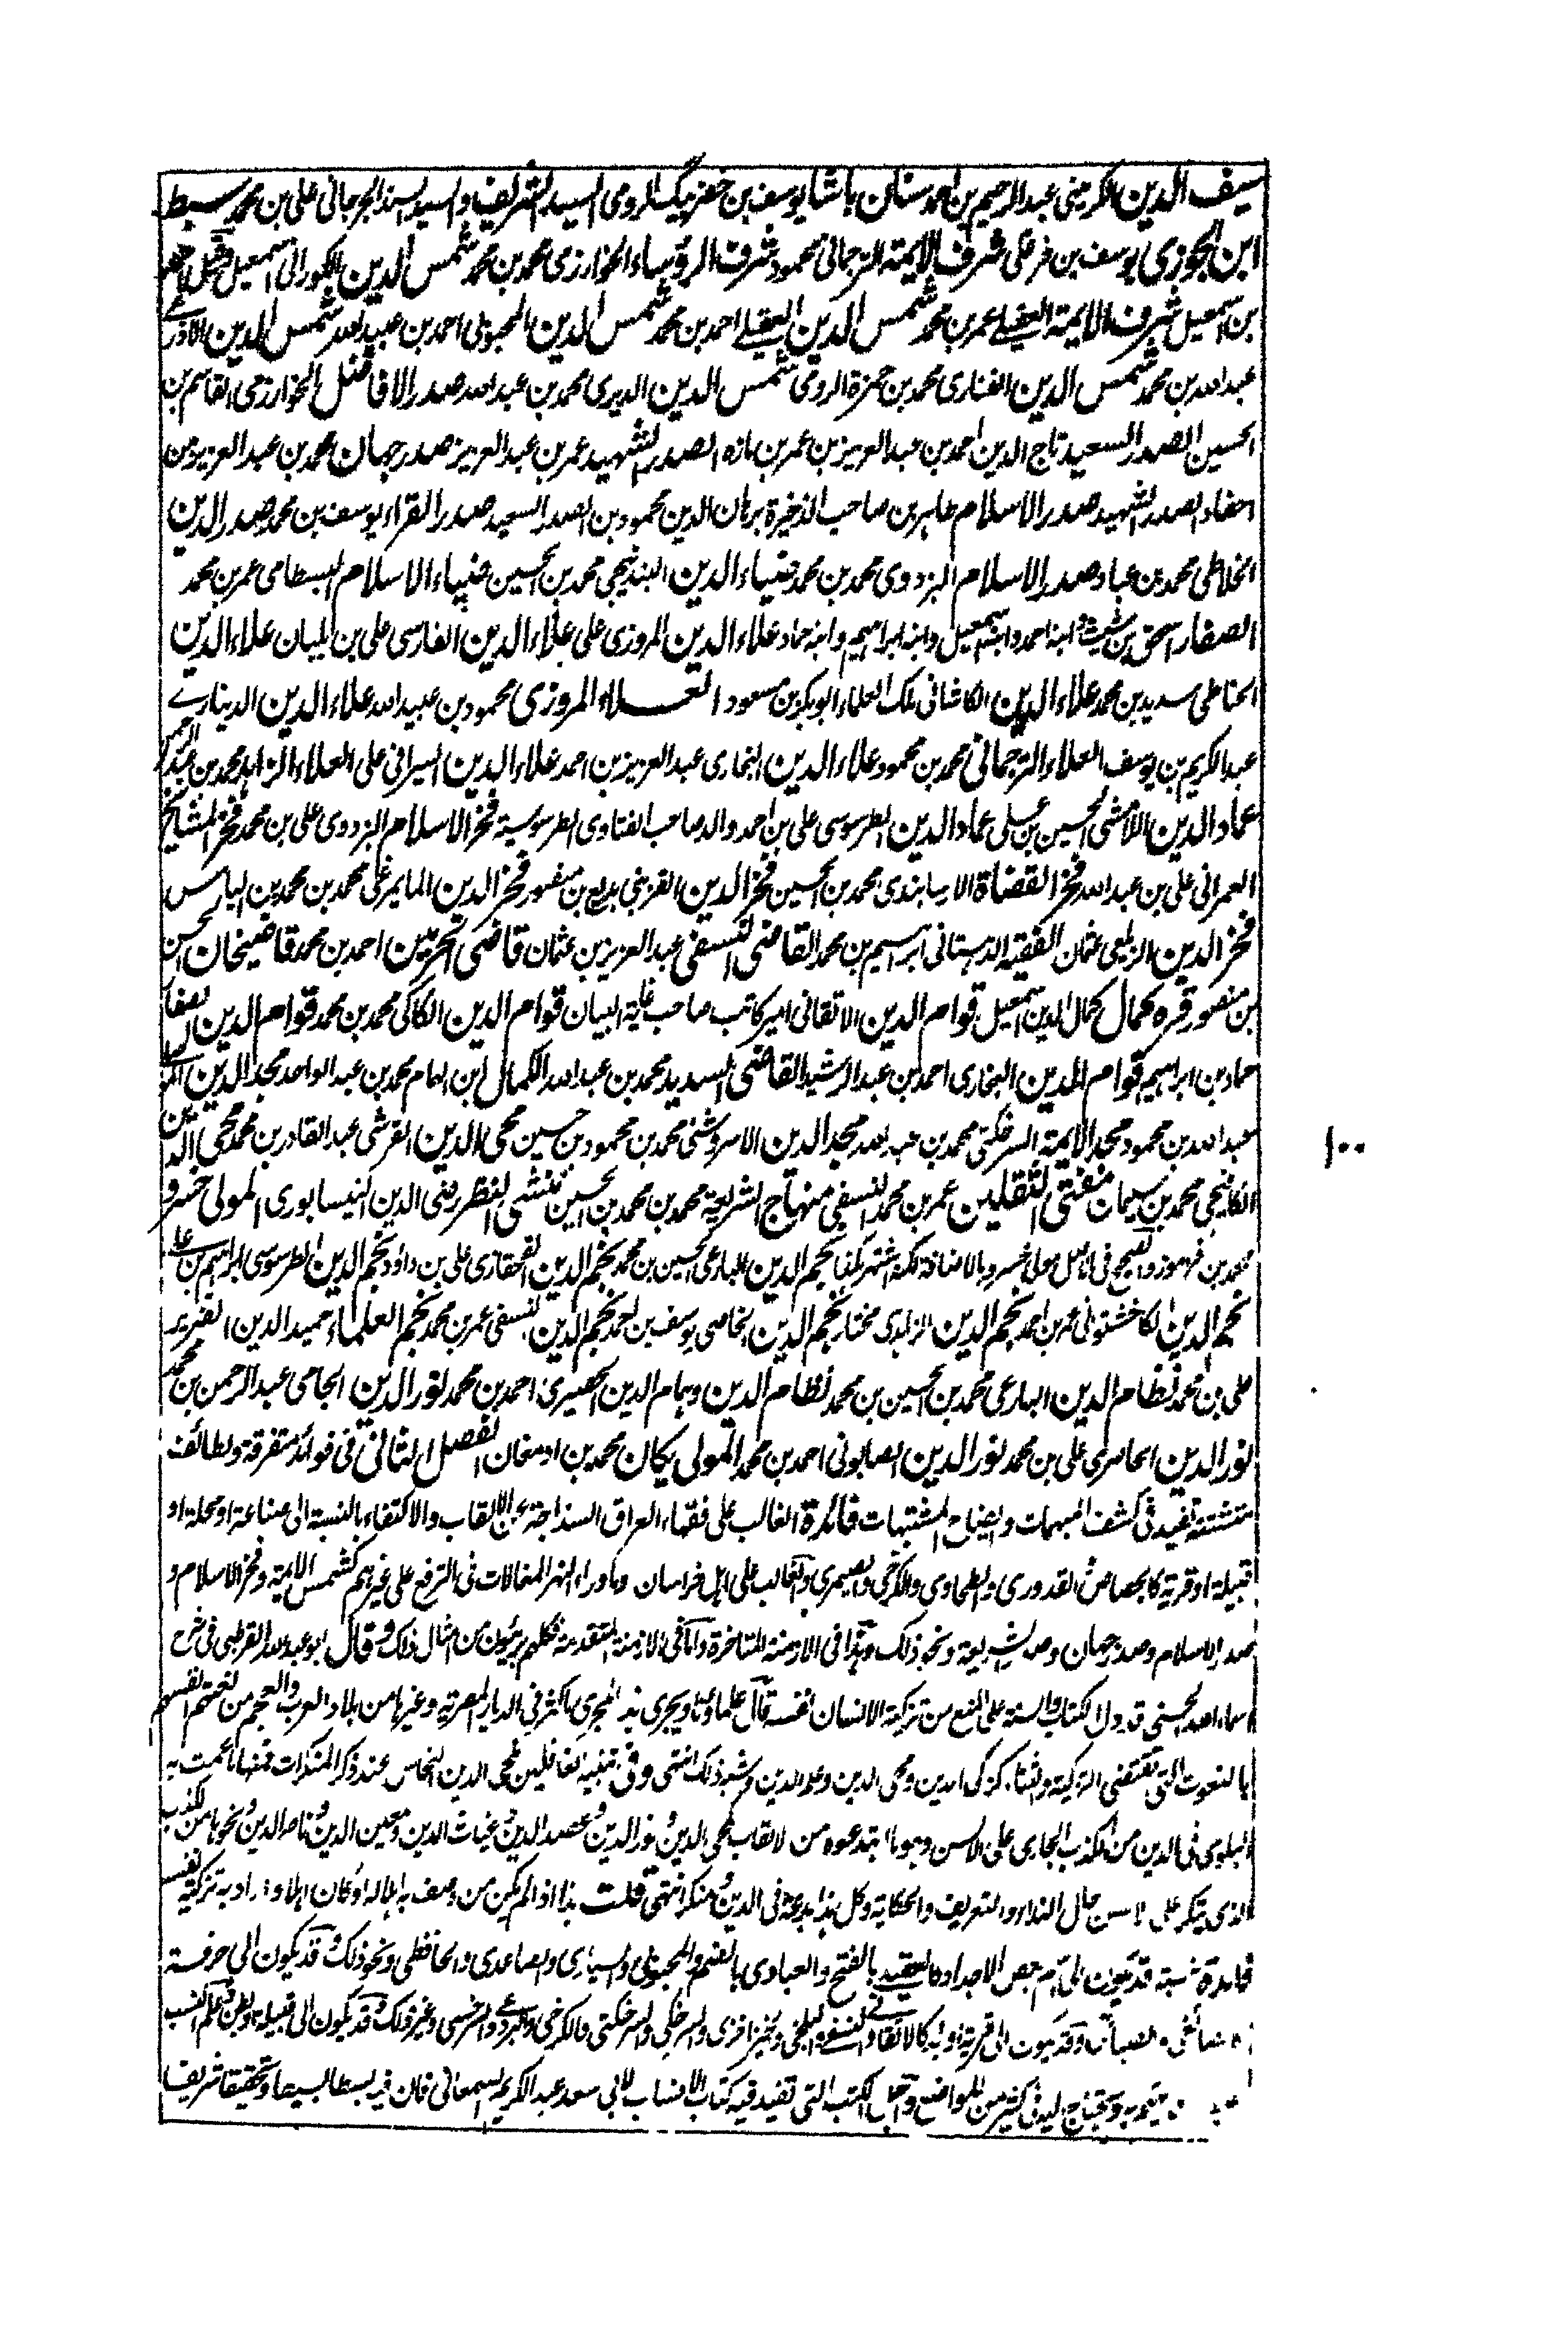 سيف الدين الكرميني عبد الرحيم بن احمد سنان باشا يوسف بن خضر بيك الرومى السيد الشريف والسيد السند الجرجانى على بن محمد سبط
ابن الجوزى يوسف بن فرغلى شرف الايمة الترجمانى محمود شرف الرؤساء الخوارزمى محمد بن محمد شمس الدين الكورانى اسمعيل وقيل احمد
بن اسمعيل شرف الايمة العقيلے عمر بن محمد شمس الدين العقيلے احمد بن محمد شمس الدين المحبوبى احمد بن عبيد الله شمس الدين الاذرعے
عبد الله بن محمد شمس الدين الفنارى محمد بن حمزة الرومى شمس الدين الديرى محمد بن عبد الله صدر الافاضل الخوارزمى القاسم بن
الحسين الصدر السعيد تاج الدين احمد بن عبد العزيز بن عمر بن مازه الصدر الشهيد عمر بن عبد العزيز صدر جهان محمد بن عبد العزيز من
احفاد الصدر الشهيد صدر الاسلام طاهر بن صاحب الذخيرة برهان الدين محمود بن الصدر السعيد صدر القراء يوسف بن محمد صدر الدين
الخلاطى محمد بن عباد صدر الاسلام البزدوى محمد بن محمد ضياء الدين البندنيجى محمد بن الحسين ضياء الاسلام البسطامى عمر بن محمد
الصفار اسحق بن شيث وابنه احمد وابنه اسمعيل وابنه ابراهيم وابنه حماد علاء الدين المروزى على علاء الدين الفارسى على بن بلبان علاء الدين
الحناطى سديد بن محمد علاء الدين الكاشانى ملك العلماء ابو بكر بن مسعود العلاء المروزى محمود بن عبيد الله علاء الدين الدينارے
عبد الكريم بن يوسف العلاء الترجمانى محمد بن محمود علاء الدين البخارى عبد العزيز بن احمد علاء الدين السيرافى على العلاء الزاهد محمد بن عبد الرحمن
عماد الدين اللامشى الحسين بن على عماد الدين الطرسوسى على بن احمد والد صاحب الفتاوى الطرسوسية فخر الاسلام البزدوى على بن محمد فخر المشايخ
العمرانى على بن عبد الله فخر القضاة الارسابندى محمد بن الحسين فخر الدين القزبنى بديع بن منصور فخر الدين المايمرغى محمد بن محمد بن الياس
فخر الدين الزيلعى عثمان الفقيه الدهستانى ابراهيم بن محمد القاضى النسفى عبد العزيز بن عثمان قاضى الحرمين احمد بن محمد قاضيخان الحسن
بن منصور قره كمال كمال الدين اسمعيل قوام الدين الاتقانى امير كاتب صاحب غاية البيان قوام الدين الكاكى محمد بن محمد قوام الدين الصفار
حماد بن ابراهيم قوام الدين البخارى احمد بن عبد الرشيد القاضى السديد محمد بن عبد الله الكمال ابن الهمام محمد بن عبد الواحد مجد الدين
عبد الله بن محمود مجد الايمة السرخكتى محمد بن عبد الله مجد الدين الاسروشنى محمد بن محمود بن حسين محى الدين القرشى عبد القادر بن محمد محى الدين
الكافيجى محمد بن سليمان مفتى الثقلين عمر بن محمد النسفى منهاج الشريعة محمد بن محمد بن الحسين منشى النظر رضى الدين النيسابورى المولى خسرو
محمد بن فرموز والصحيح فى الاصل مولى خسرو بالاضافة لكنه اشتهر كذا نجم الدين البارعى الحسين بن محمد نجم الدين القحقازى على بن داؤد نجم الدين الطرسوسى ابراهيم بن على
نجم الدين الكاخشتوانى عمر بن احمد نجم الدين الزاهدى مختار نجم الدين الخاصى يوسف بن احمد نجم الدين النسفى عمر بن محمد نجم العلماء حميد الدين الضرير
على بن محمد نظام الدين البارعى محمد بن الحسين بن محمد نظام الدين وهمام الدين الحصيرى احمد بن محمد نور الدين الجامى عبد الرحمن بن محمد
نور الدين الحاصرى على بن محمد نور الدين الصابونى احمد بن محمد المولى يكان محمد بن ادمغان الفصل الثانى فى فوائد متفرقة ولطائف
متشتتة تفيد فى كشف المبهمات وايضاح المشتبهات فائدة الغالب على فقهاء العراق السذاجة عن الالقاب والاكتفاء بالنسبة الى صناعة او محلة او
قبيلة او قرية كالجصاص والقدورى والطحاوى والكرخى والصيمرى والغالب على اهل خراسان وماوراء النهر المغالات فى الترفع على غيرهم كشمس الايمة وفخر الاسلام و
صدر الاسلام وصدر جهان وصدر الشريعة ونحو ذلك وهذا فى الازمنة المتاخرة واما فى الازمنة المتقدمة فكلهم بريئون من امثال ذلك وقال ابو عبد الله القرطبى فى شرح
اسماء الله الحسنى قد دل الكتاب والسنة على المنع من تزكية الانسان نفسه قال علماؤنا ويجرى هذا المجرى ما كثر فى الديار المصرية وغيرها من بلاد العرب والعجم من نعتهم انفسهم
بالنعوت التى تقتضى التزكية والثناء كزكى الدين ومحى الدين وعلم الدين وشبه ذلك انتهى وفى تنبيه الغافلين لمحى الدين النحاس عند ذكر المنكرات فمنها ما عمت به
البلوى فى الدين من الكذب الجارى على الالسن وهو ما ابتدعوه من الالقاب كمحى الدين ونور الدين وعضد الدين وغياث الدين ومعين الدين وناصر الدين ونحوها من الكذب
الذى يتكرر على الالسن حال النداء والتعريف والحكاية وكل هذا بدعة فى الدين ومنكر انتهى قلت هذا اذا لم يكن من وصف به اهلا له او كان اهلا واراد به تزكية نفسه
فائدة النسبة قد تكون الى اسم بعض الاجداد كالعقيلے بالفتح والعبادى بالضم والمحبوبى والسيارى والصاعدى والحافظى ونحو ذلك وقد تكون الى حرفة
وقد تكون الى قرية او بلد كالاتقانى والنسفى والبلخى والخيزاخزى والسرخكى والسرخكتى والكرخى والبردعى والسرخسى وغير ذلك وقد تكون الى قبيلة او بطن وعلم النسب
ويحتاج اليه فى كثير من المواضع واجل الكتب التى تفيد فيه كتاب الانساب لابى سعد عبد الكريم السمعانى فان فيه بسطا بسيطا وتحقيقا شريفا
١٠٠